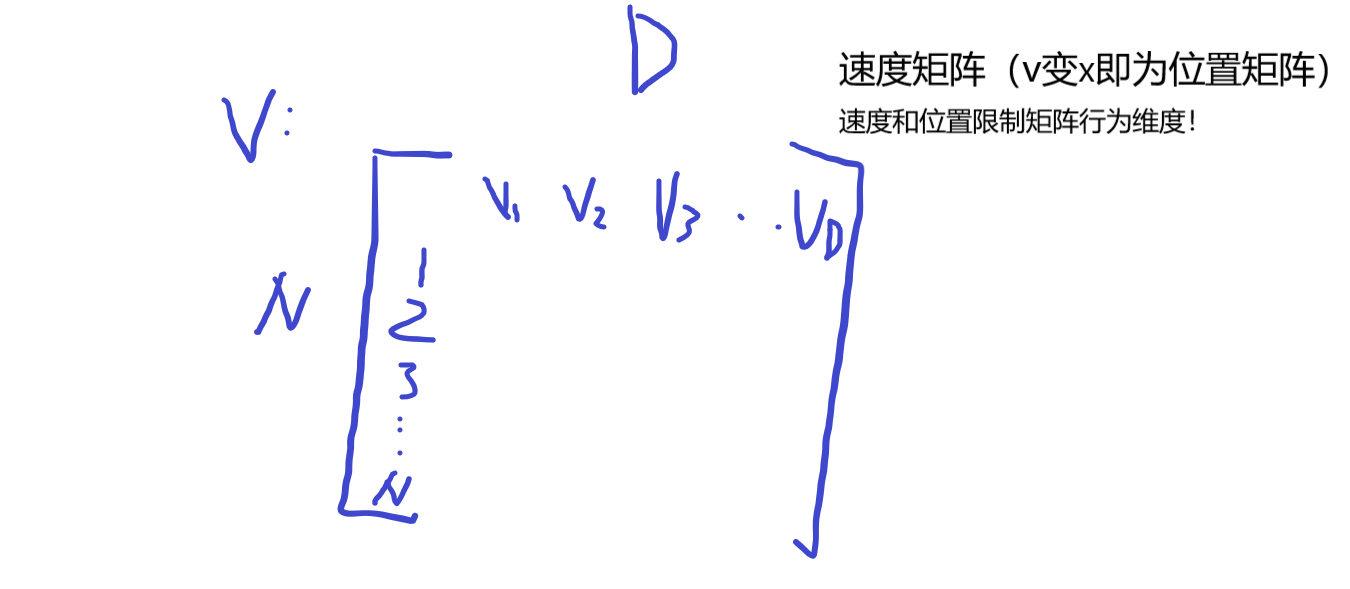 D
速度矩阵（v变x即为位置矩阵）
速度和位置限制矩阵行为维度！
V:
V1 V2 V3 ... VD
N
1
2
3
⋮
N